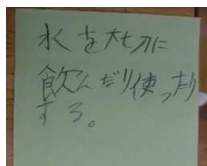 水を大切に
飲んだり使ったり
する。